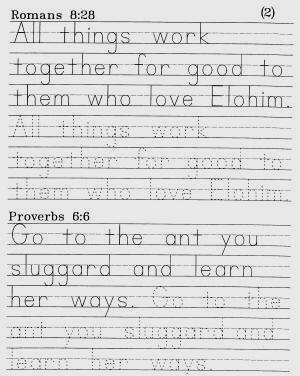 Romans 8:28 (2)
All things work
together for good to
them who love Elohim.
All things work
together for good to
them who love Elohim.
Proverbs 6:6
Go to the ant you
sluggard and learn
her ways. Go to the
ant you sluggard and
learn her ways.